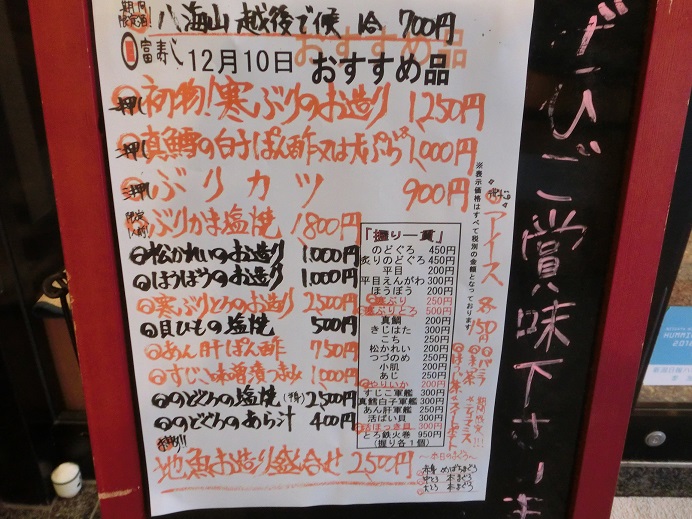 期間限定酒! 八海山 越後で候 1合 700円
富寿し 12月10日 おすすめ品
一押し 初物!寒ぶりのお造り 1,250円
二押し 真鱈の白子ぽん酢又は天ぷら 1,000円
三押し ぶりカツ 900円
ぶりかま塩焼 1800円
松かれいのお造り 1,000円
ほうぼうのお造り 1,000円
寒ぶりとろのお造り 2,500円
貝ひもの塩焼 500円
あん肝ぽん酢 750円
すじこ味噌漬つまみ 1,000円
のどぐろの塩焼(半身) 2,500円
のどぐろのあら汁 400円
地魚お造り盛合せ 2,500円
「握り一貫」
のどぐろ 450円
炙りのどぐろ 450円
平目 200円
平目えんがわ 300円
ほうぼう 200円
寒ぶり 250円
寒ぶりとろ 500円
真鯛 200円
きじはた 300円
こち 250円
松かれい 250円
つづのめ 250円
小肌 200円
あじ 250円
やりいか 200円
すじこ軍艦 300円
真鱈白子軍艦 300円
あん肝軍艦 250円
活ばい貝 300円
活ほっき貝 300円
とろ鉄火巻 950円
(握り各1個)
※表示価格はすべて税別の金額となっております。
アイス 各150円
バニラ
抹茶
ほうじ茶
期間限定!!!
ティラミス
〜本日のまぐろ〜
赤身 めばちまぐろ
中とろ 本まぐろ
大とろ 本まぐろ
ぜひご賞味下さいま